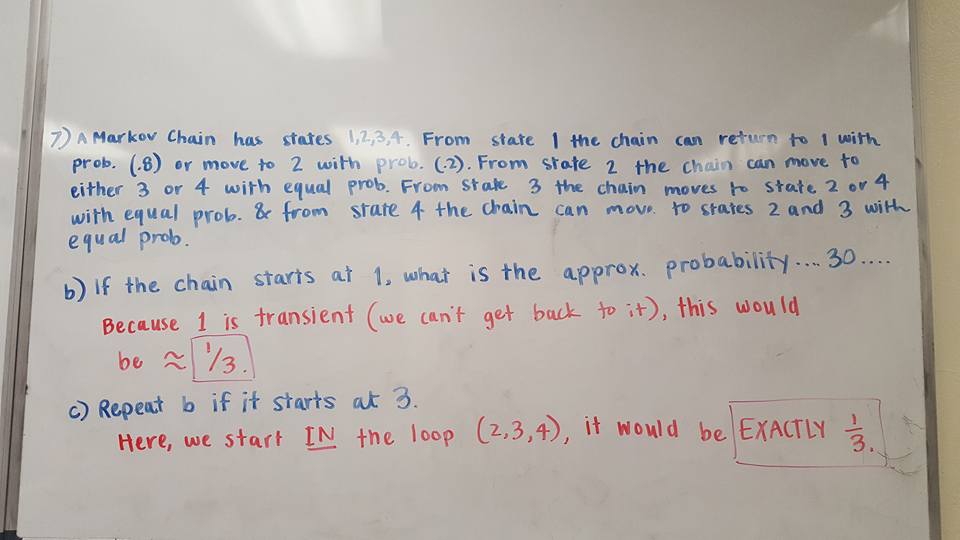 7) A Markov Chain has states 1,2,3,4. From state 1 the chain can return to 1 with
prob. (.8) or move to 2 with prob. (.2). From state 2 the chain can move to
either 3 or 4 with equal prob. From state 3 the chain moves to state 2 or 4
with equal prob. & from state 4 the chain can move to states 2 and 3 with
equal prob.
b) If the chain starts at 1, what is the approx. probability.... 30....
Because 1 is transient (we can't get back to it), this would
be ≈ 1/3.
c) Repeat b if it starts at 3.
Here, we start IN the loop (2,3,4), it would be EXACTLY 1/3.